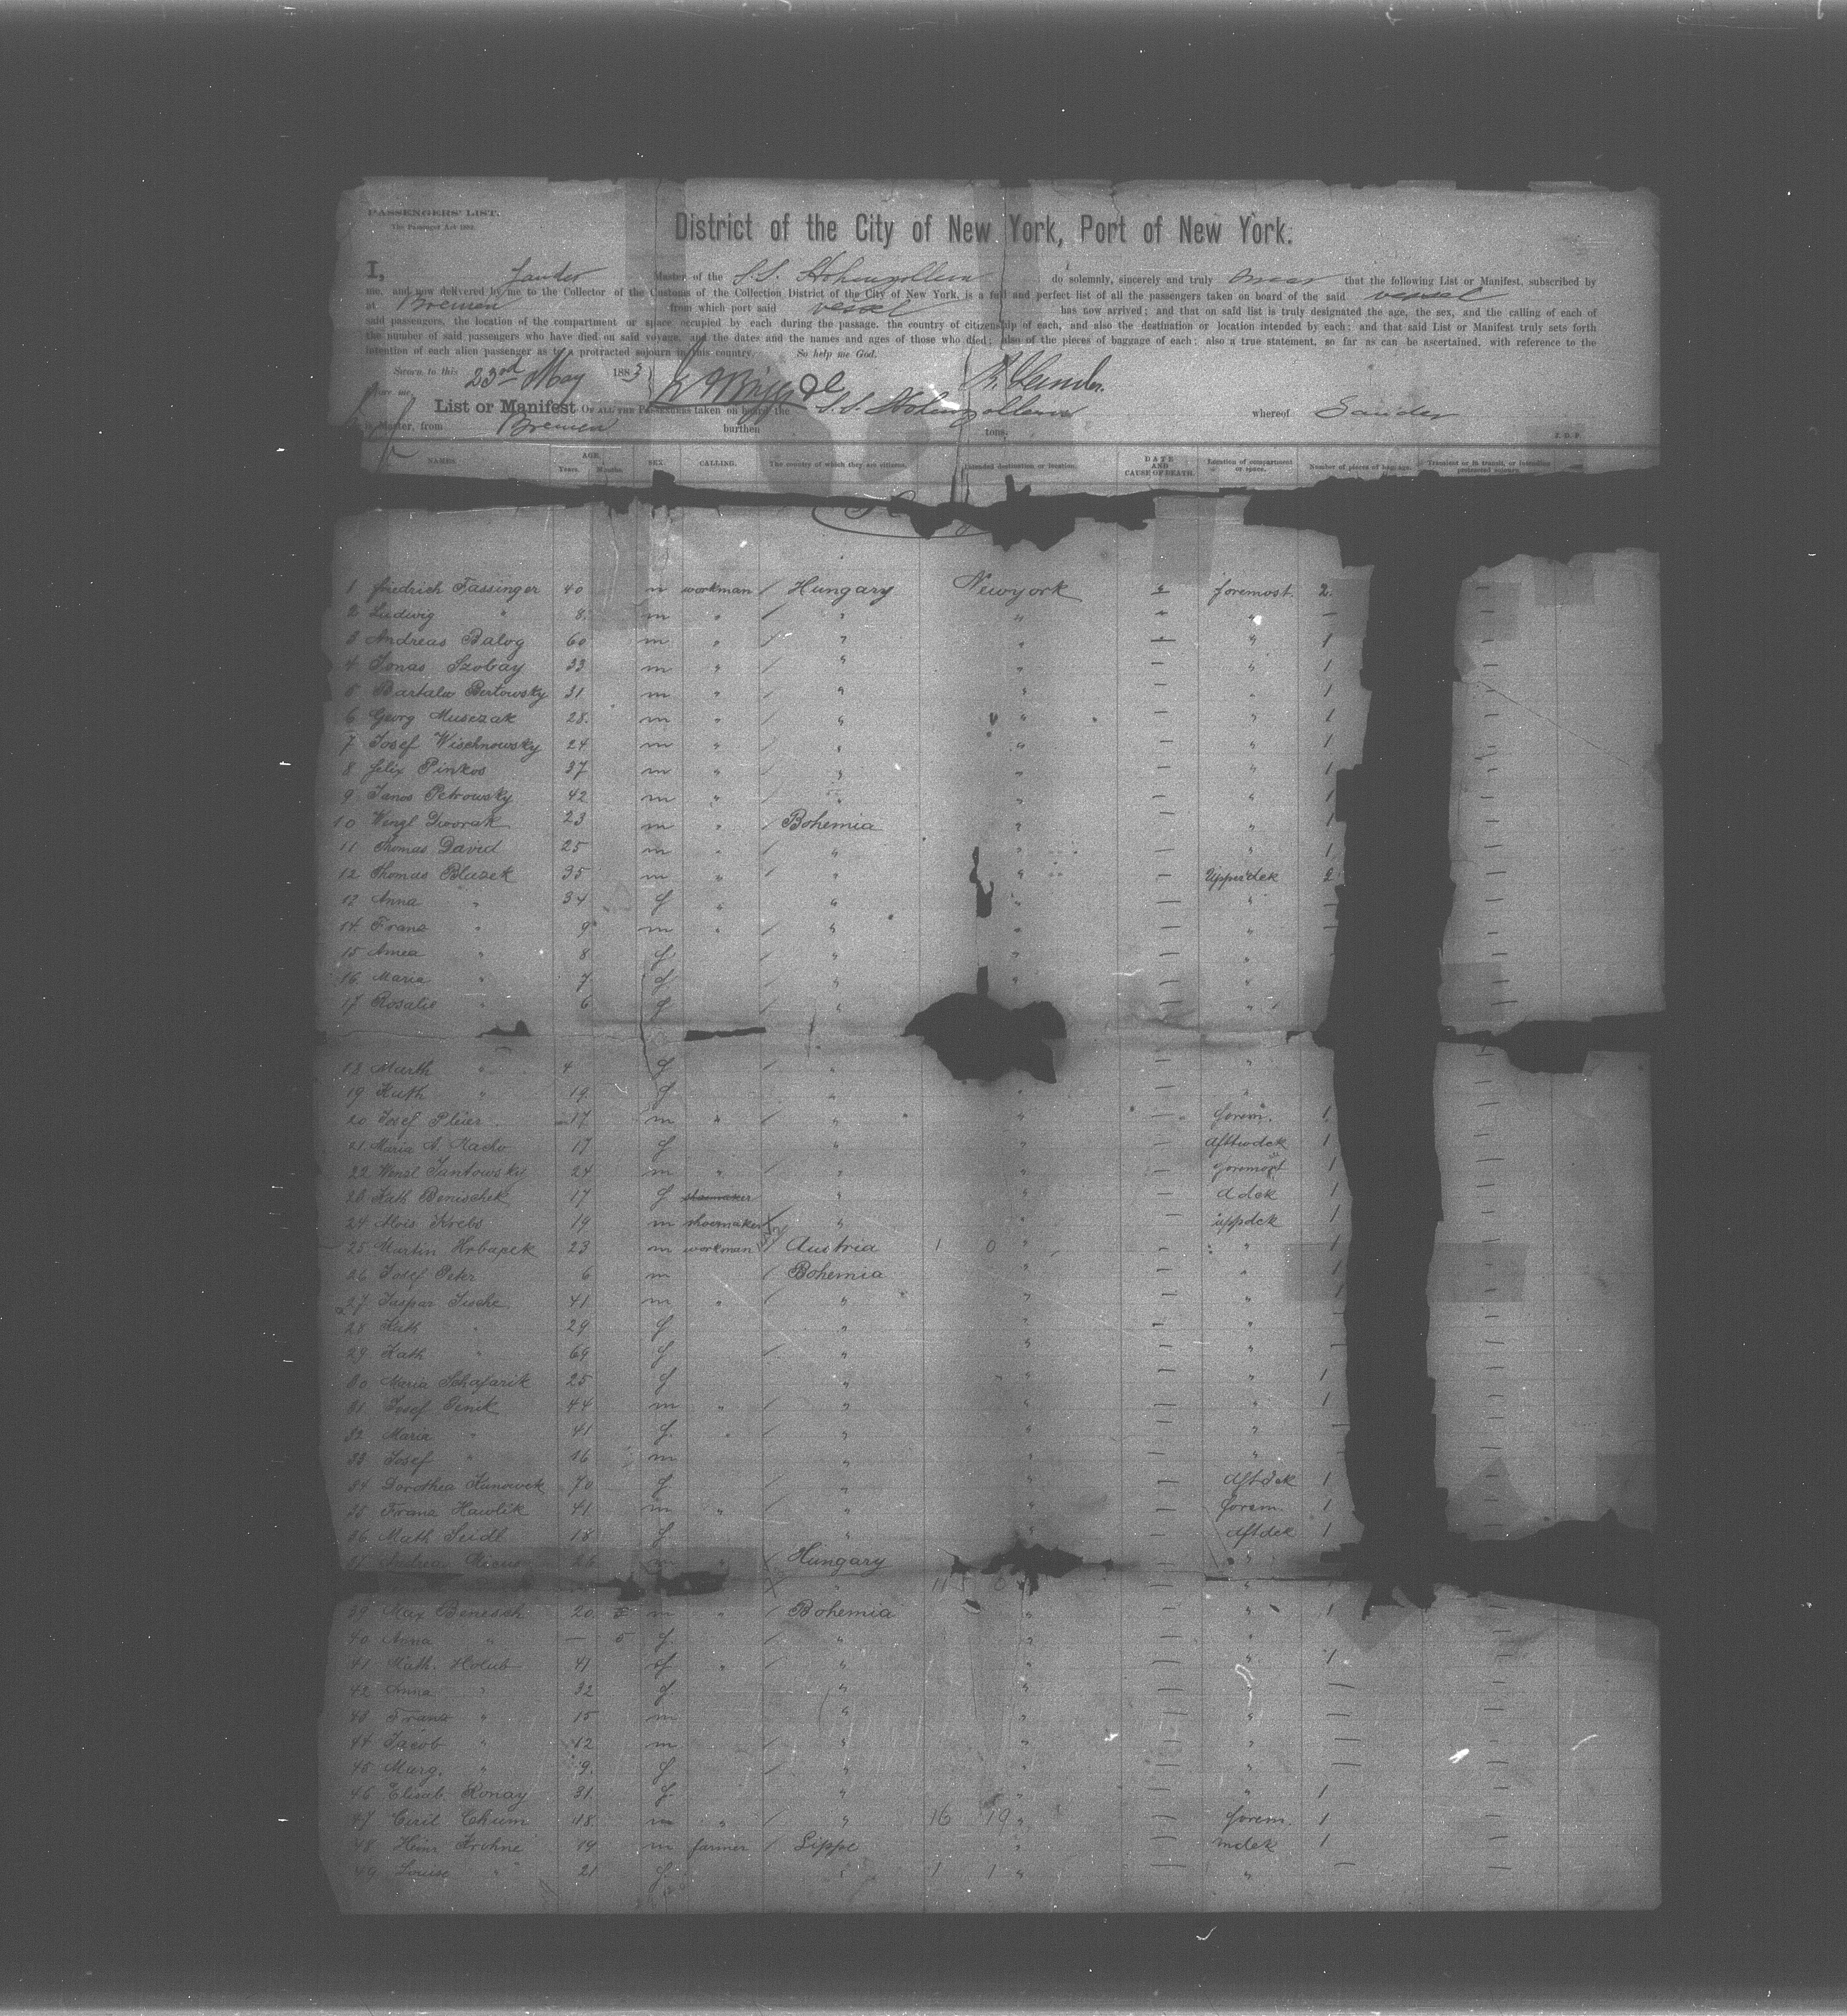 PASSENGERS' LIST.
The Passenger Act 1882.
District of the City of New York, Port of New York.
I, Sander Master of the S.S. Hohenzollern do solemnly, sincerely and truly swear that the following List or Manifest, subscribed by
me, and now delivered by me to the Collector of the Customs of the Collection District of the City of New York, is a full and perfect list of all the passengers taken on board of the said vessel
at Bremen from which port said vessel has now arrived; and that on said list is truly designated the age, the sex, and the calling of each of
said passengers, the location of the compartment or space occupied by each during the passage, the country of citizenship of each, and also the destination or location intended by each; and that said List or Manifest truly sets forth
the number of said passengers who have died on said voyage, and the dates and the names and ages of those who died; also of the pieces of baggage of each; also a true statement, so far as can be ascertained, with reference to the
intention of each alien passenger as to a protracted sojourn in this country. So help me God.
Sworn to this 23rd May 1883 R. Sander
before me
List or Manifest OF ALL THE PASSENGERS taken on board the S.S. Hohenzollern whereof Sander
is Master, from Bremen burthen tons.
NAMES. AGE. Years. Months. SEX. CALLING. The country of which they are citizens. Intended destination or location. DATE AND CAUSE OF DEATH. Location of compartment or space. Number of pieces of baggage. Transient or in transit, or intending protracted sojourn.
1 Friedrich Fassinger 40 m workman / Hungary Newyork — foremost 2
2 Ludwig " 8 m " / " " — " —
3 Andreas Balog 60 m " / " " — " 1
4 Jonas Szobay 33 m " / " " — " 1
5 Bartala Bertowsky 31 m " / " " — " 1
6 Georg Musczak 28 m " / " " — " 1
7 Josef Wischnowsky 24 m " / " " — " 1
8 Felix Pinkos 37 m " / " " — " 1
9 Janos Petrowsky 42 m " / " " — " 1
10 Wenzl Dworak 23 m " / Bohemia " — " 1
11 Thomas David 25 m " / " " — " 1
12 Thomas Bluzek 35 m " / " " — Upperdek 2
13 Anna " 34 f " " " — " —
14 Franz " 9 m " / " " — " —
15 " 8 f / " " — "
16 Maria " 7 f / " " — "
17 Rosalie " 6 f / " — "
18 Marth " 4 f / " — "
19 Kath " 19 f " " — "
20 Josef 17 m " / " " — forem. 1
21 Maria A. 17 f " " — aftwdek 1
22 Wenzl Jantowsky 24 m " / " " — foremost 1
23 Kath Benischek 17 f shoemaker " " — adek 1
24 Alois Krebs 19 m shoemaker " " — uppdek 1
25 Martin Hrbapek 23 m workman / Austria 1 0 " — " 1
26 Josef Peter 6 m / Bohemia " — " 1
27 Caspar 41 m " / " " — " 1
28 Kath " 29 f " " — "
29 Kath " 69 f / " " — "
30 Maria Schafarik 25 f " " — " 1
31 Josef 44 m " / " " — " 1
32 Maria " 41 f " " " — " —
33 Josef " 16 m " " — " —
34 Dorothea 70 f / " " — aftdek 1
35 Franz Hawlik 41 m " / " " — forem. 1
36 Math Seidl 18 f " " — aftdek 1
Andreas 26 m " / Hungary "
11 0 — "
39 Max Benesch 20 m " / Bohemia " — " 1
40 Anna " — 5 f / " " — "
41 Math. Holub 41 " / " " — " 1
42 Anna " 32 f " " — " —
43 Franz " 15 m " " — " —
44 Jacob " 12 m / " " — " —
45 Marg. " 9 f / " " — " —
46 Elisab. Ronay 31 f " " — " 1
47 Ciril Chum 18 m " / " 16 19 " — forem. 1
48 Heinr Frohne 19 m farmer / Lippe " — mdek 1
49 Louise " 21 f " 1 1 " — " —